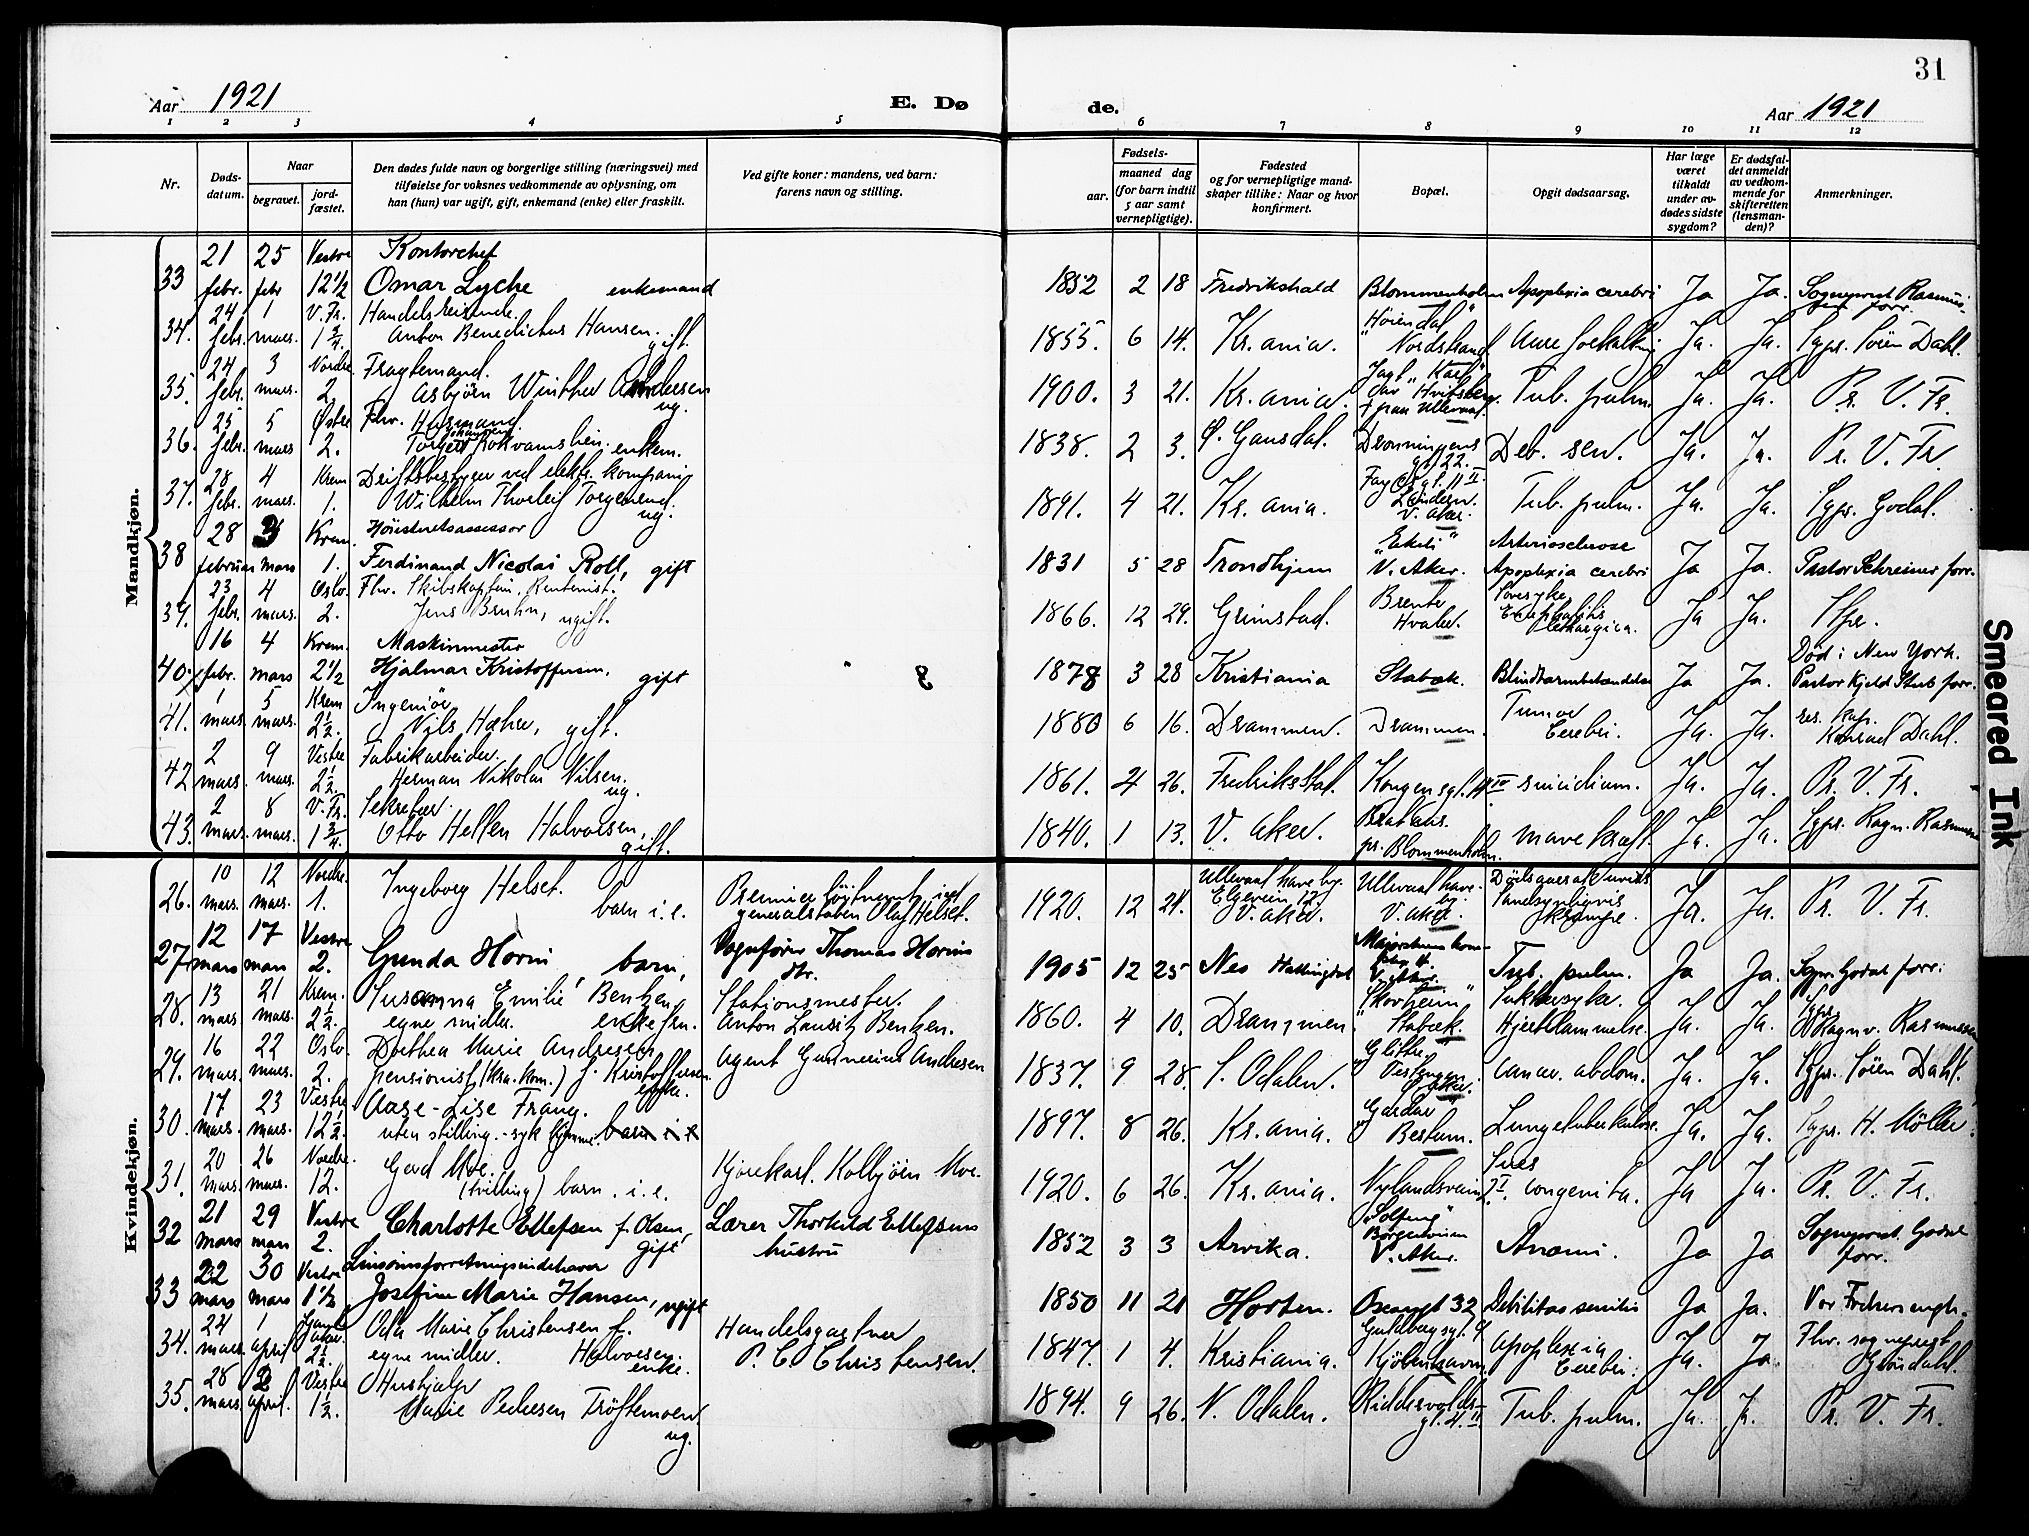 31
Aar 1921
E. Dø
de.
Aar 1921
1 2 3 4 5 6 7 8 9 10 11 12
Nr.
Døds-
datum.
Naar
begravet.
jord-
fæstet.
Den dødes fulde navn og borgerlige stilling (næringsvei) med
tilføielse for voksnes vedkommende av oplysning, om
han (hun) var ugift, gift, enkemand (enke) eller fraskilt.
Ved gifte koner: mandens, ved barn:
farens navn og stilling.
Fødsels-
aar.
maaned dag
(for barn indtil
5 aar samt
vernepligtige).
Fødested
og for vernepligtige mand-
skaper tillike: Naar og hvor
konfirmert.
Bopæl.
Opgit dødsaarsag.
Har læge
været
tilkaldt
under av-
dødes sidste
sygdom?
Er dødsfal-
det anmeldt
av vedkom-
mende for
skifteretten
(lensman-
den)?
Anmerkninger.
Mandkjøn.
21 25 Vestre Kontorchef
33 febr. febr 12 1/2 Omar Lyche enkemand 1852 2 18 Fredrikshald Blommenholm Apoplexia cerebri Ja Ja. Sogneprest Rasmus-
sen forr.
24 1 V. Fr. Handelsreisende.
34. febr. mars. 1 3/4. Anton Benedictus Hansen. gift. 1855. 6 14. Kr.ania. "Høiendal" Nordstrand. Ja. Ja. Sgpr. Sören Dahl.
24 3 Nordre. Fragtemand.
35. febr. mars. 2. Asbjörn Winther Andersen ug. 1900. 3 21. Kr.ania. Jagt "Karl" Tub. pulm. Ja. Ja. Pr. V. Fr.
25 5 Østre Fhv. Husmand.
36. febr. mars 2. enkem. 1838. 2 3. Dronningens gt. 22. Deb. sen. Ja. Ja. Pr. V. Fr.
28 4 Krem Driftsbestyrer ved elektr. kompani
37. febr. mars. 1. Wilhelm Thorleif ug. 1891. 4 21. Kr.ania. V. Aker. Tub. pulm. Ja. Ja. Sgpr. Godal.
28 3 Krem. Høiesteretsassessor
38 februar mars 1. Ferdinand Nicolai Roll, gift 1831 5 28 Trondhjem "Ekeli" V. Aker. Arteriosclerose Apoplexia cerebri Ja Ja. Pastor Schreiner forr.
23 4 Oslo. Fhv. Skibskaptein, Rentenist.
39. febr. mars. 2. Jens Bruhn, ugift. 1866. 12 29. Grimstad. Hvaler. Sovesyke Encephalitis lethargica. Ja Ja. Sgpr.
16 4 Krem. Maskinmester
40. febr. mars 2 1/2 Hjalmar Kristoffersen. gift 1878 3 28 Kristiania Stabæk. Blindtarmbetændelse Ja Ja. Død i New York.
Pastor Kjeld Stub forr.
1 5 Krem Ingeniör
41. mars. mars. 2 1/2. Nils Hæhre, gift. 1880 6 16. Drammen. Drammen. Tumor Cerebri. Ja. Ja. res. kap. Konrad Dahl.
2 9 Vestre Fabrikarbeider.
42 mars. mars. 2 1/2. Herman Nikolai Nilsen. ug. 1861. 4 26. Fredrikstad. Kongensgt. suicidium. Ja. Ja. Pr. V. Fr.
2 8 V. Fr. Sekretær.
43. mars. mars. 1 3/4. Otto Hellen Halvorsen, gift. 1840. 1 13. V. Aker. pr. Blommenholm. mavekræft Ja. Ja. Sgpr. Ragn. Rasmussen
Kvindekjøn.
10 12 Nordre.
26. mars. mars. 1. Ingeborg Helset. barn i. e. Premierløjtnant i generalstaben Olaf Helset. 1920. 12 21. Ullevaal have by. Elgveien 12. V. Aker. Ullevaal have- by. V. Aker. Sandsynligvis krampe. Ja. Ja. Pr. V. Fr.
12 17 Vestre
27 mars mars 2. Gunda Horni, barn, Vognfører Thomas Hornis dtr. 1905 12 25 Nes Hallingdal V. Aker. Tub. pulm. Ja Ja. Sgpr. Godal forr.
13 21 Krem.
28. mars mars. 2 1/2. Susanna Emilie Bentzen egne midler. enkefru. Stationsmester. Anton Lauritz Bentzen. 1860. 4 10. Drammen. "Skovheim" Stabæk. Sukkersyke. Hjertelammelse. Ja. Ja. Sgpr. Ragnv. Rasmussen
16 22 Oslo.
29. mars. mars. 2. Dorthea Marie Andresen pensionist (kra. kom.) f. Kristoffersen. enke. Agent Gunnerius Andresen 1837. 9 28. S. Odalen. "Glitre" Cancer. abdom. Ja. Ja. Sgpr. Sören Dahl.
17 23 Vestre
30. mars. mars. 12 1/2. Aase-Lise Frang. uten stilling. - syk hjemme. barn i e 1897. 8 26. Kr.ania. Bestum. Lungetuberkulose. Ja. Ja. Sgpr. H. Möller.
20 26 Nordre.
31. mars. mars. 12. Gerd Moe. (tvilling) barn. i. e. Kjörekarl. Kolbjörn Moe. 1920. 6 26. Kr.ania. Nylandsveien Lues congenita. Ja Ja. Pr. V. Fr.
21 29 Vestre
32 mars mars 2. Charlotte Ellefsen f. Olsen, gift Lærer Thorkild Ellefsens hustru 1852 3 3 Arvika. "Solfeng" V. Aker. Anæmi. Ja Ja Sogneprest Godal forr.
22 30 Vestre
33 mars mars 1 1/2 Josefine Marie Hansen, ugift 1850 11 21 Horten. Oscarsgt 32 Debilitas senilis Ja Ja. Vor Frelsers engh.
24 1 Gamle Aker.
34. mars. april 2 1/2. Oda Marie Christensen f. Halvorsen. egne midler. enke. Handelsgartner P. C. Christensen. 1847. 1 4. Kristiania. Guldbergsgt. 9 Kjöbenhavn. apoplexia Cerebri. Ja. Ja. Fhv. sogneprest Gröndahl.
28 2 Vestre Hushjælp
35. mars. april. 1 1/2. Marie Pedersen Tröftemoen ug. 1894. 9 26. N. Odalen. Riddervolds- gt. 4. II Tub. pulm. Ja. J. Pr. V. Fr.
Smeared Ink